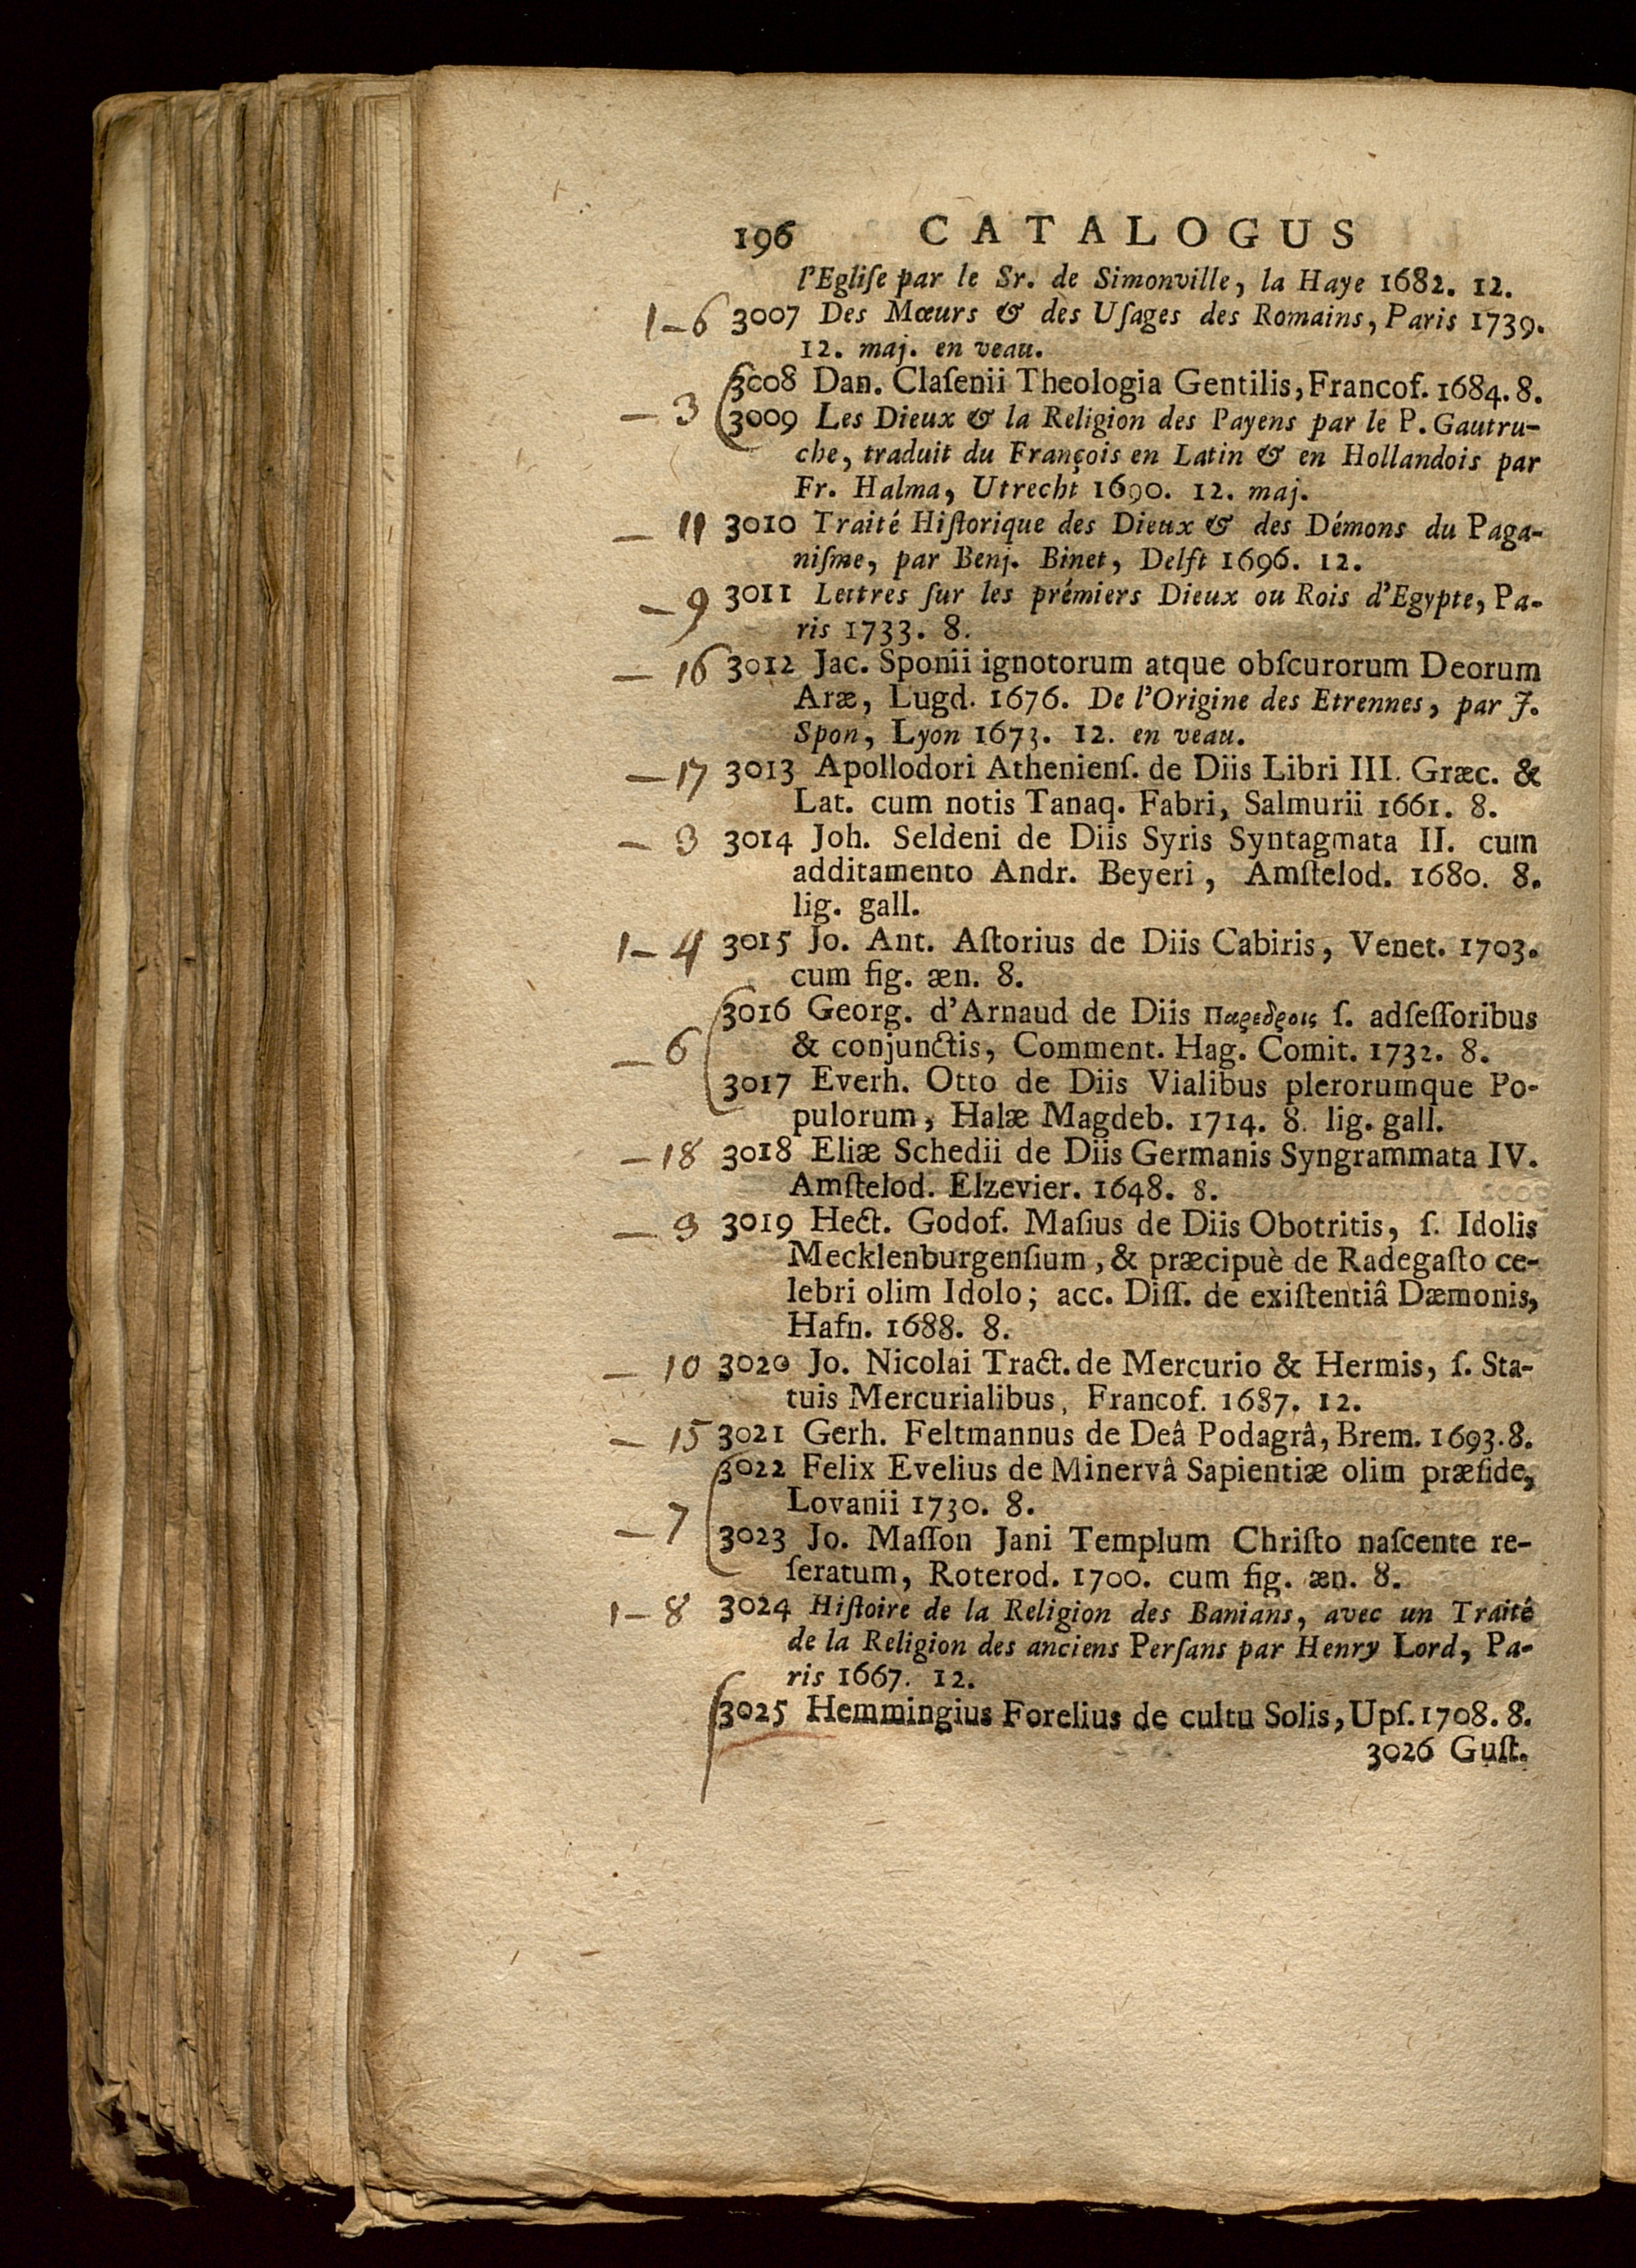 196 CATALOGUS
l'Egliſe par le Sr. de Simonville, la Haye 1682. 12.
1-6 3007 Des Mœurs & des Uſages des Romains, Paris 1739.
12. maj. en veau.
3008 Dan. Claſenii Theologia Gentilis, Francof. 1684. 8.
- 3 3009 Les Dieux & la Religion des Payens par le P. Gautru-
che, traduit du François en Latin & en Hollandois par
Fr. Halma, Utrecht 1690. 12. maj.
- 11 3010 Traité Hiſtorique des Dieux & des Démons du Paga-
niſme, par Benj. Binet, Delft 1696. 12.
- 9 3011 Lettres ſur les prémiers Dieux ou Rois d'Egypte, Pa-
ris 1733. 8.
- 16 3012 Jac. Sponii ignotorum atque obſcurorum Deorum
Aræ, Lugd. 1676. De l'Origine des Etrennes, par J.
Spon, Lyon 1673. 12. en veau.
- 17 3013 Apollodori Athenienſ. de Diis Libri III. Græc. &
Lat. cum notis Tanaq. Fabri, Salmurii 1661. 8.
- 3 3014 Joh. Seldeni de Diis Syris Syntagmata II. cum
additamento Andr. Beyeri, Amſtelod. 1680. 8.
lig. gall.
1-4 3015 Jo. Ant. Aſtorius de Diis Cabiris, Venet. 1703.
cum fig. æn. 8.
3016 Georg. d'Arnaud de Diis Παρεδροις ſ. adſeſſoribus
- 6 & conjunctis, Comment. Hag. Comit. 1732. 8.
3017 Everh. Otto de Diis Vialibus plerorumque Po-
pulorum, Halæ Magdeb. 1714. 8. lig. gall.
- 18 3018 Eliæ Schedii de Diis Germanis Syngrammata IV.
Amſtelod. Elzevier. 1648. 8.
- 3 3019 Hect. Godof. Maſius de Diis Obotritis, ſ. Idolis
Mecklenburgenſium, & præcipuè de Radegaſto ce-
lebri olim Idolo; acc. Diſſ. de exiſtentiâ Dæmonis,
Hafn. 1688. 8.
- 10 3020 Jo. Nicolai Tract. de Mercurio & Hermis, ſ. Sta-
tuis Mercurialibus, Francof. 1687. 12.
- 15 3021 Gerh. Feltmannus de Deâ Podagrâ, Brem. 1693. 8.
3022 Felix Evelius de Minervâ Sapientiæ olim præſide,
Lovanii 1730. 8.
- 7 3023 Jo. Maſſon Jani Templum Chriſto naſcente re-
ſeratum, Roterod. 1700. cum fig. æn. 8.
1-8 3024 Hiſtoire de la Religion des Banians, avec un Traité
de la Religion des anciens Perſans par Henry Lord, Pa-
ris 1667. 12.
3025 Hemmingius Forelius de cultu Solis, Upſ. 1708. 8.
3026 Guſt.